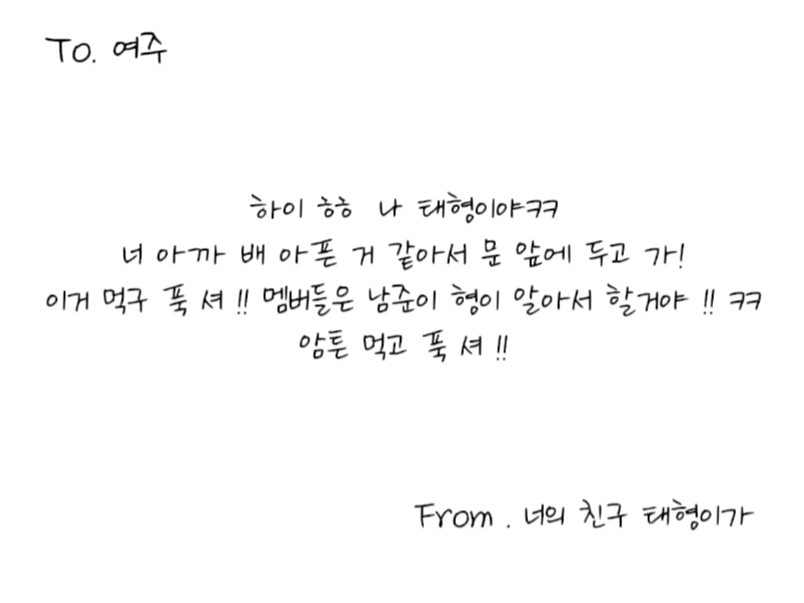 To. 여주
하이 ㅎㅎ 나 태형이야ㅋㅋ
너 아까 배 아픈 거 같아서 문 앞에 두고 가!
이거 먹구 푹 셔!! 멤버들은 남준이 형이 알아서 할거야!! ㅋㅋ
암튼 먹고 푹 셔!!
From. 너의 친구 태형이가